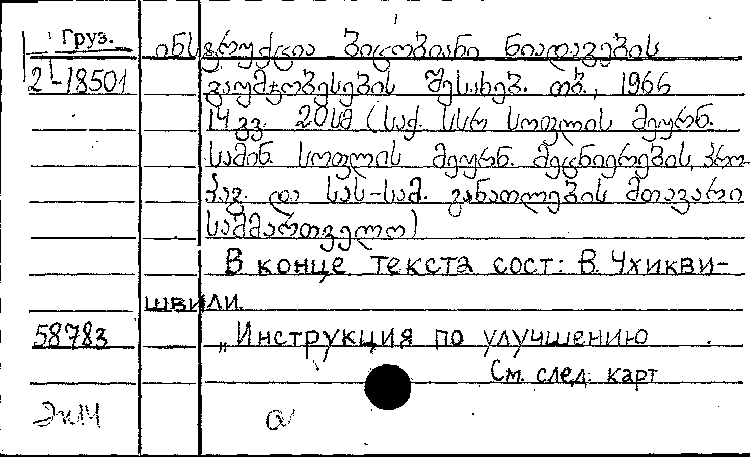 Груз.
ინსტრუქცია ბიცობიანი ნიადაგების
2-18501 გაუმჯობესების შესახებ. თბ., 1966
14 გვ. 20სმ (საქ. სსრ სოფლის მეურნ.
სამინ. სოფლის მეურნ. მეცნიერების, პრო-
პაგ. და სას-სამ. განათლების მთავარი
სამმართველო)
В конце текста сост: В. Чхикви-
швили.
58783 „Инструкция по улучшению
См. след. карт